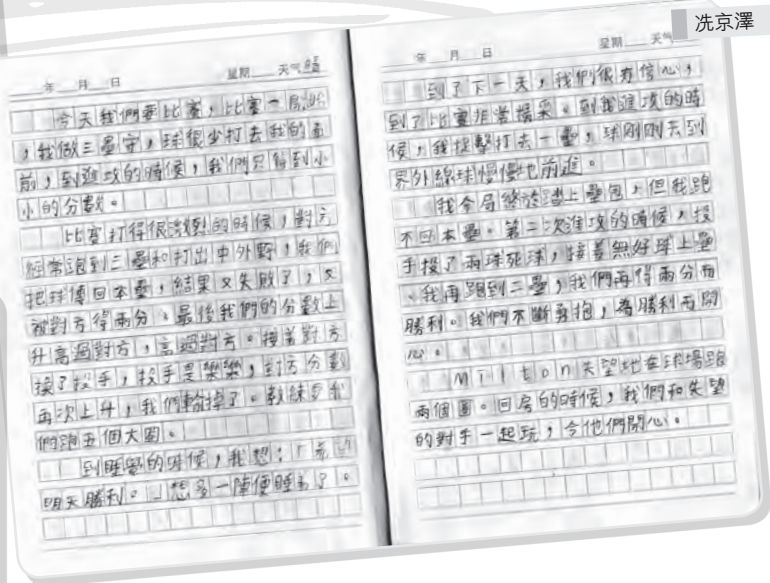 冼京澤
年 月 日 星期 天气
今天我們要比賽,比賽一開始
,我做三壘守,球很少打去我的面
前,到進攻的時候,我們只得到小
小的分數。
比賽打得很激烈的時候,對方
經常跑到三壘和打出中外野,我們
把球傳回本壘,結果又失敗了,又
被對方得兩分。最後我們的分數上
升高過對方,高過對方。接著對方
換了投手,投手是樂樂,對方分數
再次上升,我們輸掉了。教練要我
們跑五個大圈。
到睡覺的時候,我想:「希望
明天勝利。」想多一陣便睡着了。
年 月 日 星期 天气
到了下一天,我們很有信心,
到了比賽非常精采。到我進攻的時
候,我捉擊打去一壘,球剛剛去到
界外線球慢慢地前進。
我今局終於踏上壘包,但我跑
不回本壘。第二次進攻的時候,投
手投了兩球死球,接著無好球上壘
。我再跑到二壘,我們再得兩分而
勝利。我們不斷勇抱,為勝利而開
心。
Milton失望地在球場跑
兩個圈。回房的時候,我們和失望
的對手一起玩,令他們開心。